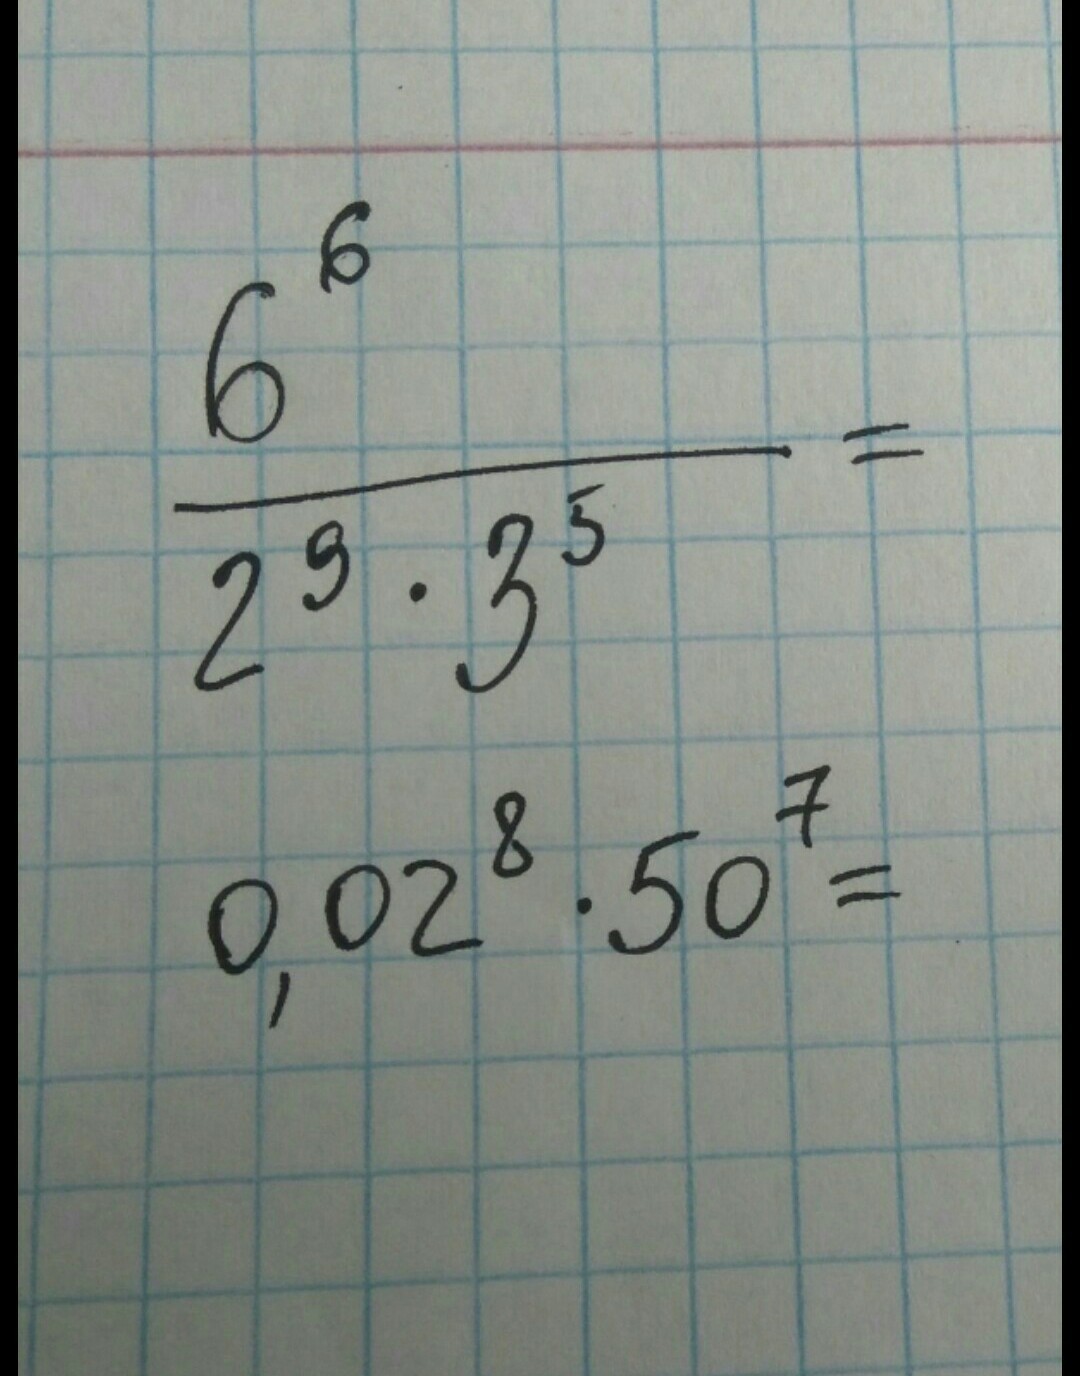 6⁶
2⁹ · 3⁵ =
0,02⁸ · 50⁷ =